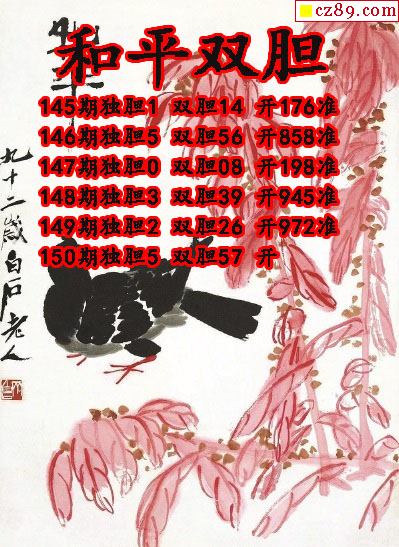 cz89.com
和平双胆
145期独胆1 双胆14 开176准
146期独胆5 双胆56 开858准
147期独胆0 双胆08 开198准
148期独胆3 双胆39 开945准
149期独胆2 双胆26 开972准
150期独胆5 双胆57 开
九十二岁白石老人